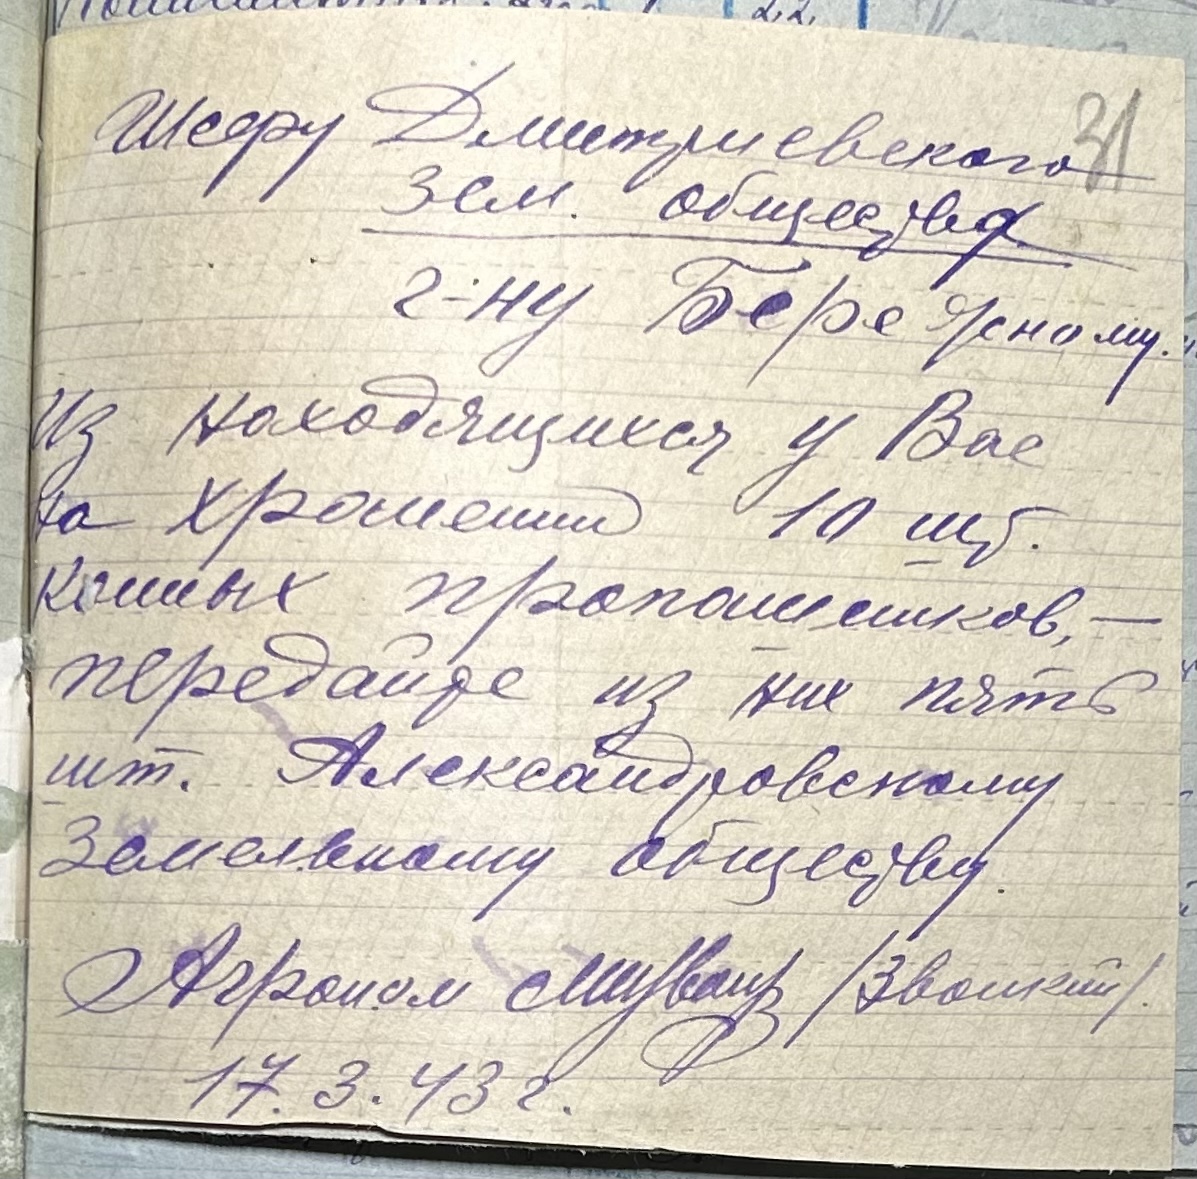 31
Шефу Дмитриевского
Зем. общества
г-ну Бережному.
Из находящихся у Вас
на хранении 10 шт.
Конных пропашников, —
передайте из них пять
шт. Александровскому
Земельному обществу.
Агроном /Звонкий/.
17.3.43 г.